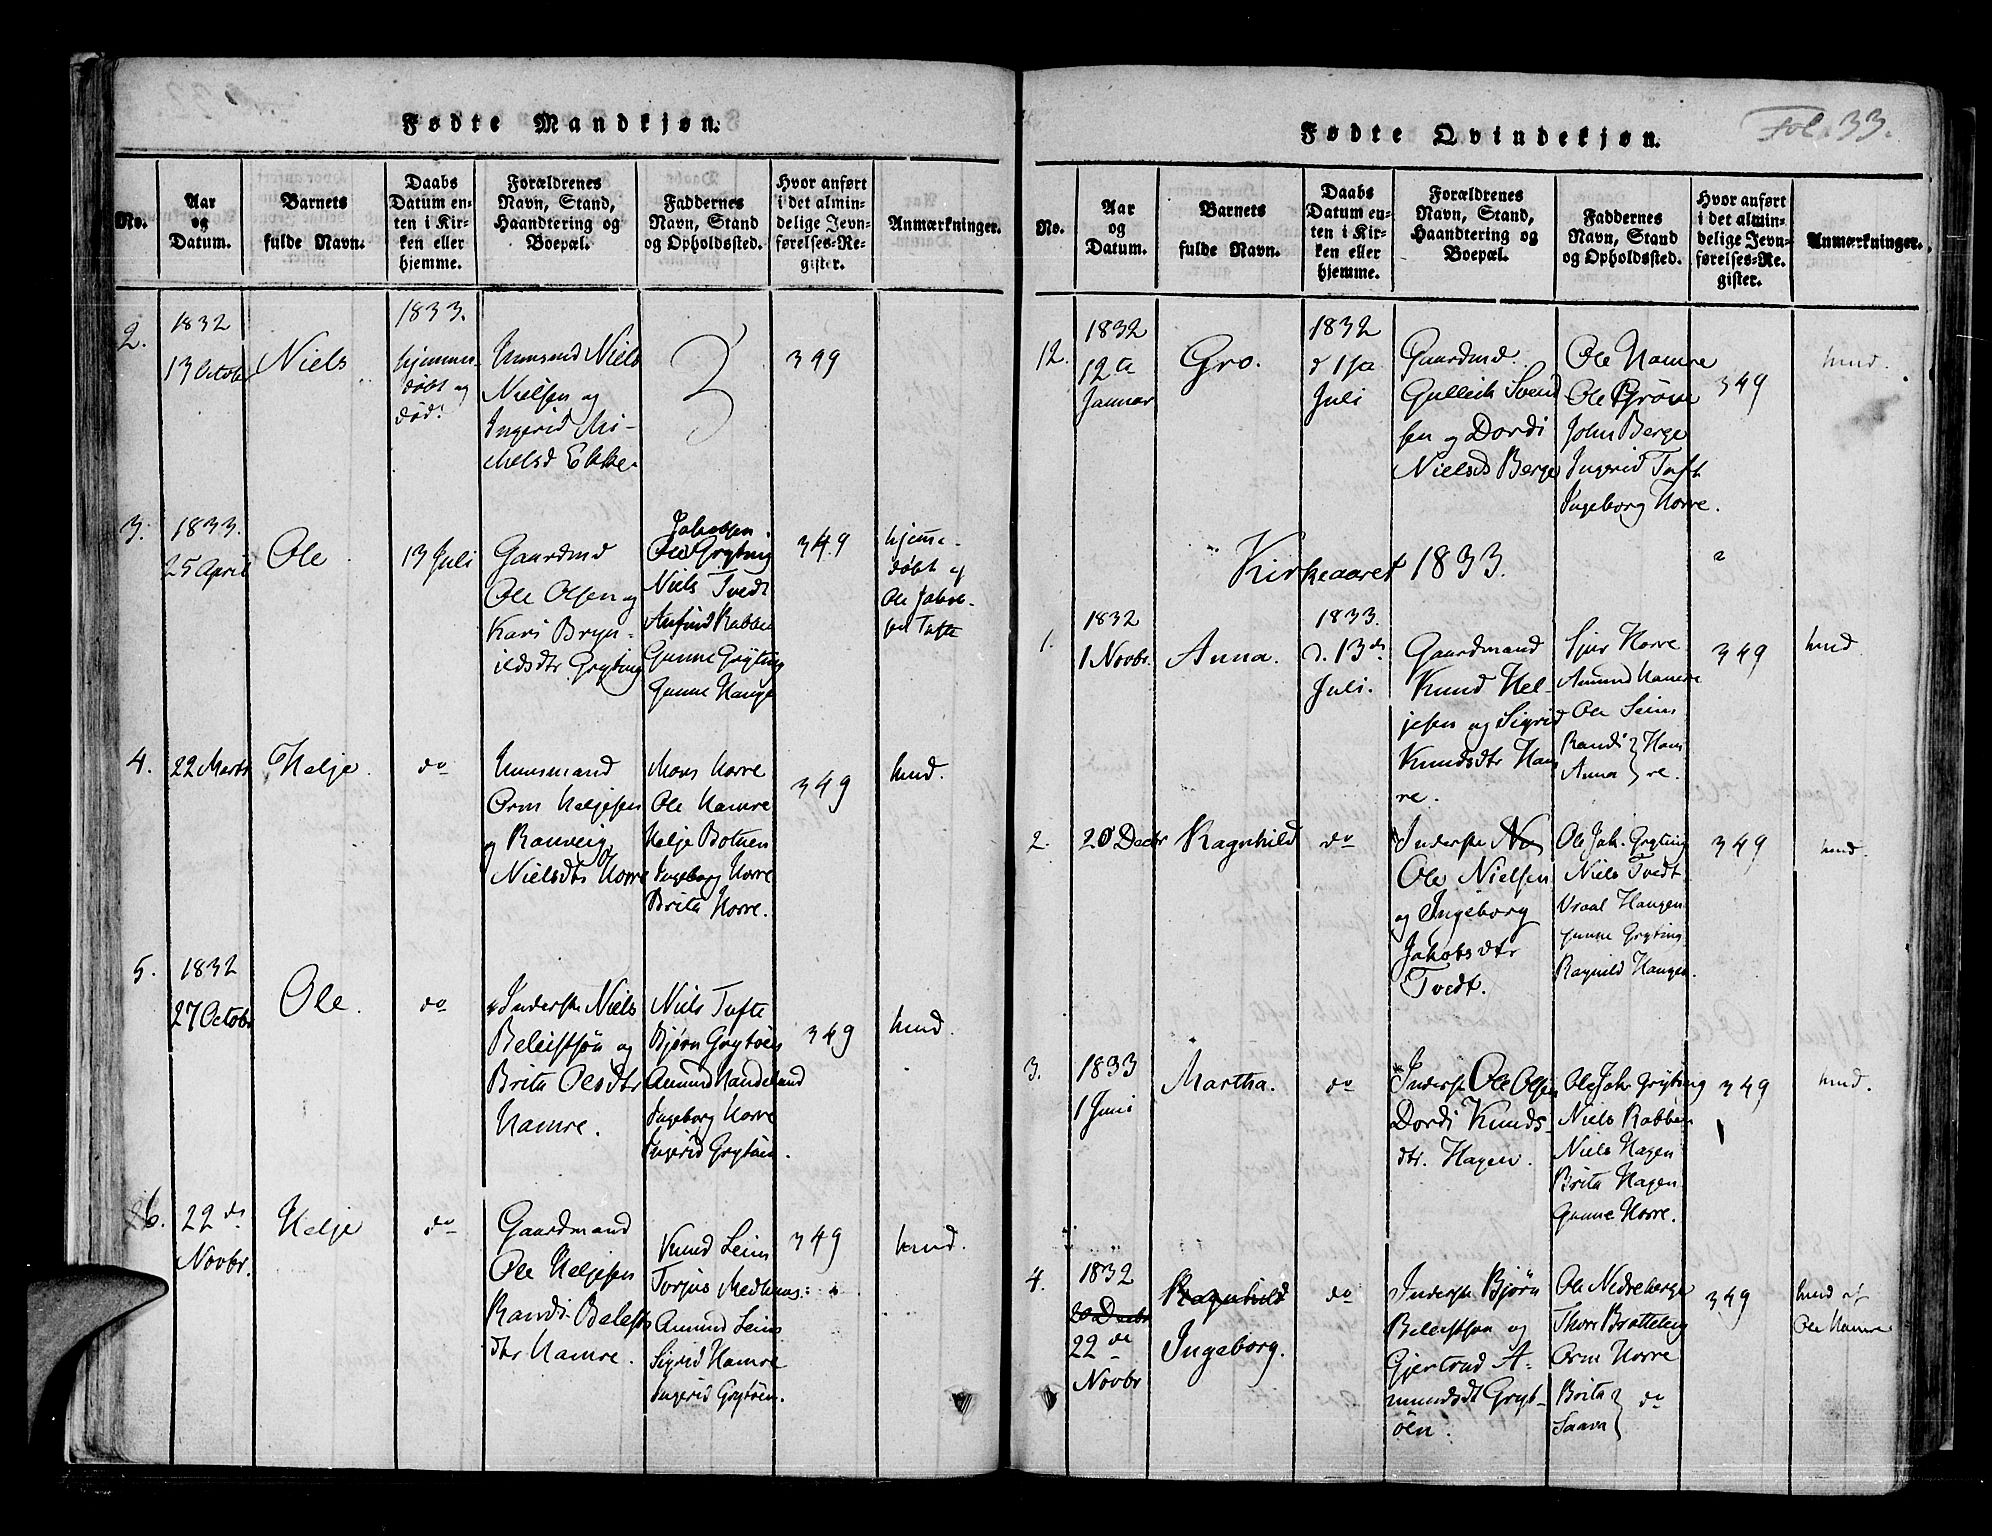 Fødte Mandkjøn.
No.
Aar
og
Datum.
Barnets
fulde Navn.
Daabs
Datum en-
ten i Kir-
ken eller
hjemme.
Forældrenes
Navn, Stand,
Haandtering og
Boepæl.
Faddernes
Navn, Stand
og Opholdssted.
Hvor anført
i det almin-
delige Jevn-
førelses-Re-
gister.
Anmærkninger.
2.
1832
13 Octobr
Niels
1833.
hjemme-
døbt og
død.
Huusmd Niels
Nielsen og
Ingerid Mi-
chelsd Ekke
349
3.
1833.
25 April
Ole
13 Juli
Gaardmd
Ole Olsen og
Kari Bryn-
ildsdtr Gryting
Jakobsen
Ole Gryting
Niels Tvedt
Anfind Rabbe
Gunne Gryting
Gunne Hauge
349
hjemme-
døbt af
Ole Jakob-
sen Tufte
4.
22 Marts
Helje
do
Huusmand
Orm Heljesen
og Ranveig
Nielsdtr Horre
Mons Horre
Ole Hamre
Helje Botnen
Ingeborg Horre
Brita Horre.
349
hmd.
5.
1832
27 Octobr
Ole.
do
Inderste Niels
Beleistsøn og
Brita Olesdtr
Hamre.
Niels Tufte
Bjørn Grytøen
Amund Handeland
Ingeborg Horre
Ingerid Grytøen.
349
hmd.
6.
22 de
Novbr.
Helje
do
Gaardmand
Ole Heljesen
Randi Belests
dtr Hamre.
Knud Seim
Torjus Medhuus
Amund Seim
Sigrid Hamre
Ingerid Grytøen.
349
hmd.
Fol. 33.
Fødte Qvindekjøn.
No.
Aar
og
Datum.
Barnets
fulde Navn.
Daabs
Datum en-
ten i Kir-
ken eller
hjemme.
Forældrenes
Navn, Stand,
Haandtering og
Boepæl.
Faddernes
Navn, Stand
og Opholdssted.
Hvor anført
i det almin-
delige Jevn-
førelses-Re-
gister.
Anmærkninger.
12.
1832
12te
Januar
Gro.
1832
d 1ste
Juli
Gaardmd.
Gulleik Svend
sen og Dordi
Nielsd Berge
Ole Hamre
Ole Prøve
John Berge
Ingerid Tuft
Ingeborg Horre.
349
hmd.
Kirkeaaret 1833.
1.
1832
1 Novbr.
Anna.
1833.
d. 13de
Juli.
Gaardmand
Knud Hel-
jesen og Sigrid
Knudsdtr Ham
re.
Sjur Horre
Amund Hamre
Ole Seim
Randi } Ham
Anna } re.
349
hmd.
2.
20 Decbr
Ragnhild
do
Inderste
Ole Nielsen
og Ingeborg
Jakobsdtr
Tvedt.
Ole Jak. Gryting
Niels Tvedt
Vraal Haugen
Gunne Gryting
Ragnild Haugen
349
hmd.
3.
1833
1 Juni
Martha.
do
Inderste Ole Olsen
Dordi Knuds-
dtr. Hagen.
Ole Jak Gryting
Niels Rabbe
Niels Hagen
Brita Hagen
Gunne Horre.
349
hmd.
4.
1832
20 Decbr
22 de
Novbr
Ragnhild
Ingeborg.
do
Inderste Bjørn
Beleistsøn og
Gjertrud A-
mundsdt Gryt-
øen.
Ole Nedreberge
Thore Bratteteig
Orm Horre
Brita } do
Saava }
349
hmd af
Ole Hamre